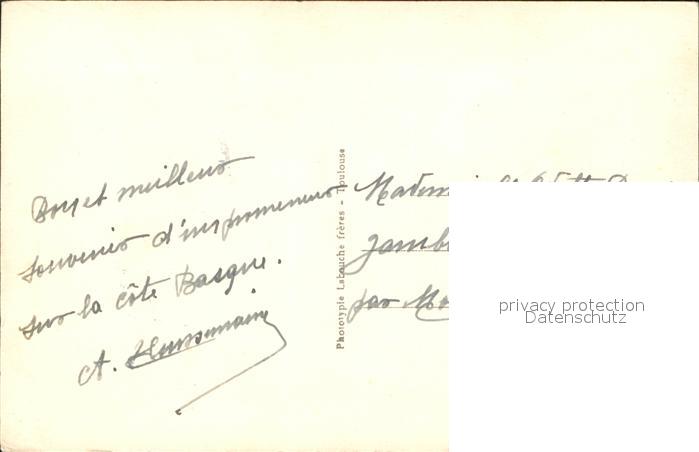 Bons et meilleurs
souvenirs d'un promeneur
sur la côte Basque.
A.
Phototypie Labouche frères - Toulouse
par
privacy protection
Datenschutz